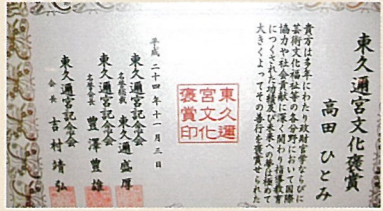 東久邇宮文化褒賞
高田 ひとみ
貴方は多年にわたり政財官学ならびに
芸術文化福祉等の各分野において国際
協力や社会貢献に深く関わり指導教育
につくされた功績及び未来への夢は極めて
大きくよってその善行を褒賞せられた
東久邇
宮文化
褒賞印
平成二十四年十一月三日
東久邇宮記念会
名誉総裁 東久邇盛厚
東久邇宮記念会
名誉会長 豊澤豊雄
東久邇宮記念会
会長 吉村靖弘